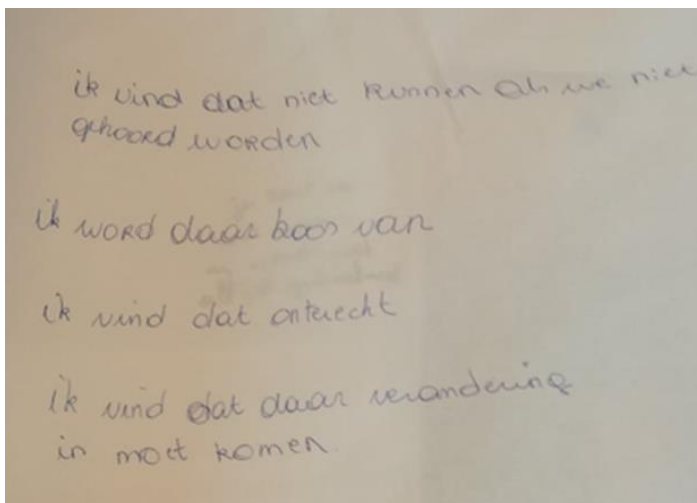 ik vind dat niet kunnen als we niet
gehoord worden
ik word daar boos van
ik vind dat onterecht
ik vind dat daar verandering
in moet komen.